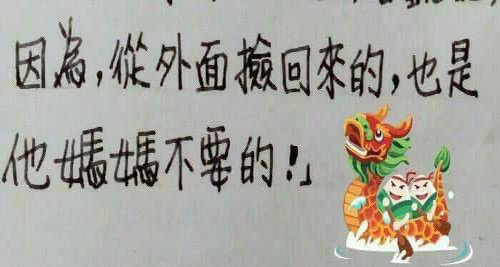 因為,從外面撿回來的,也是
他媽媽不要的!」